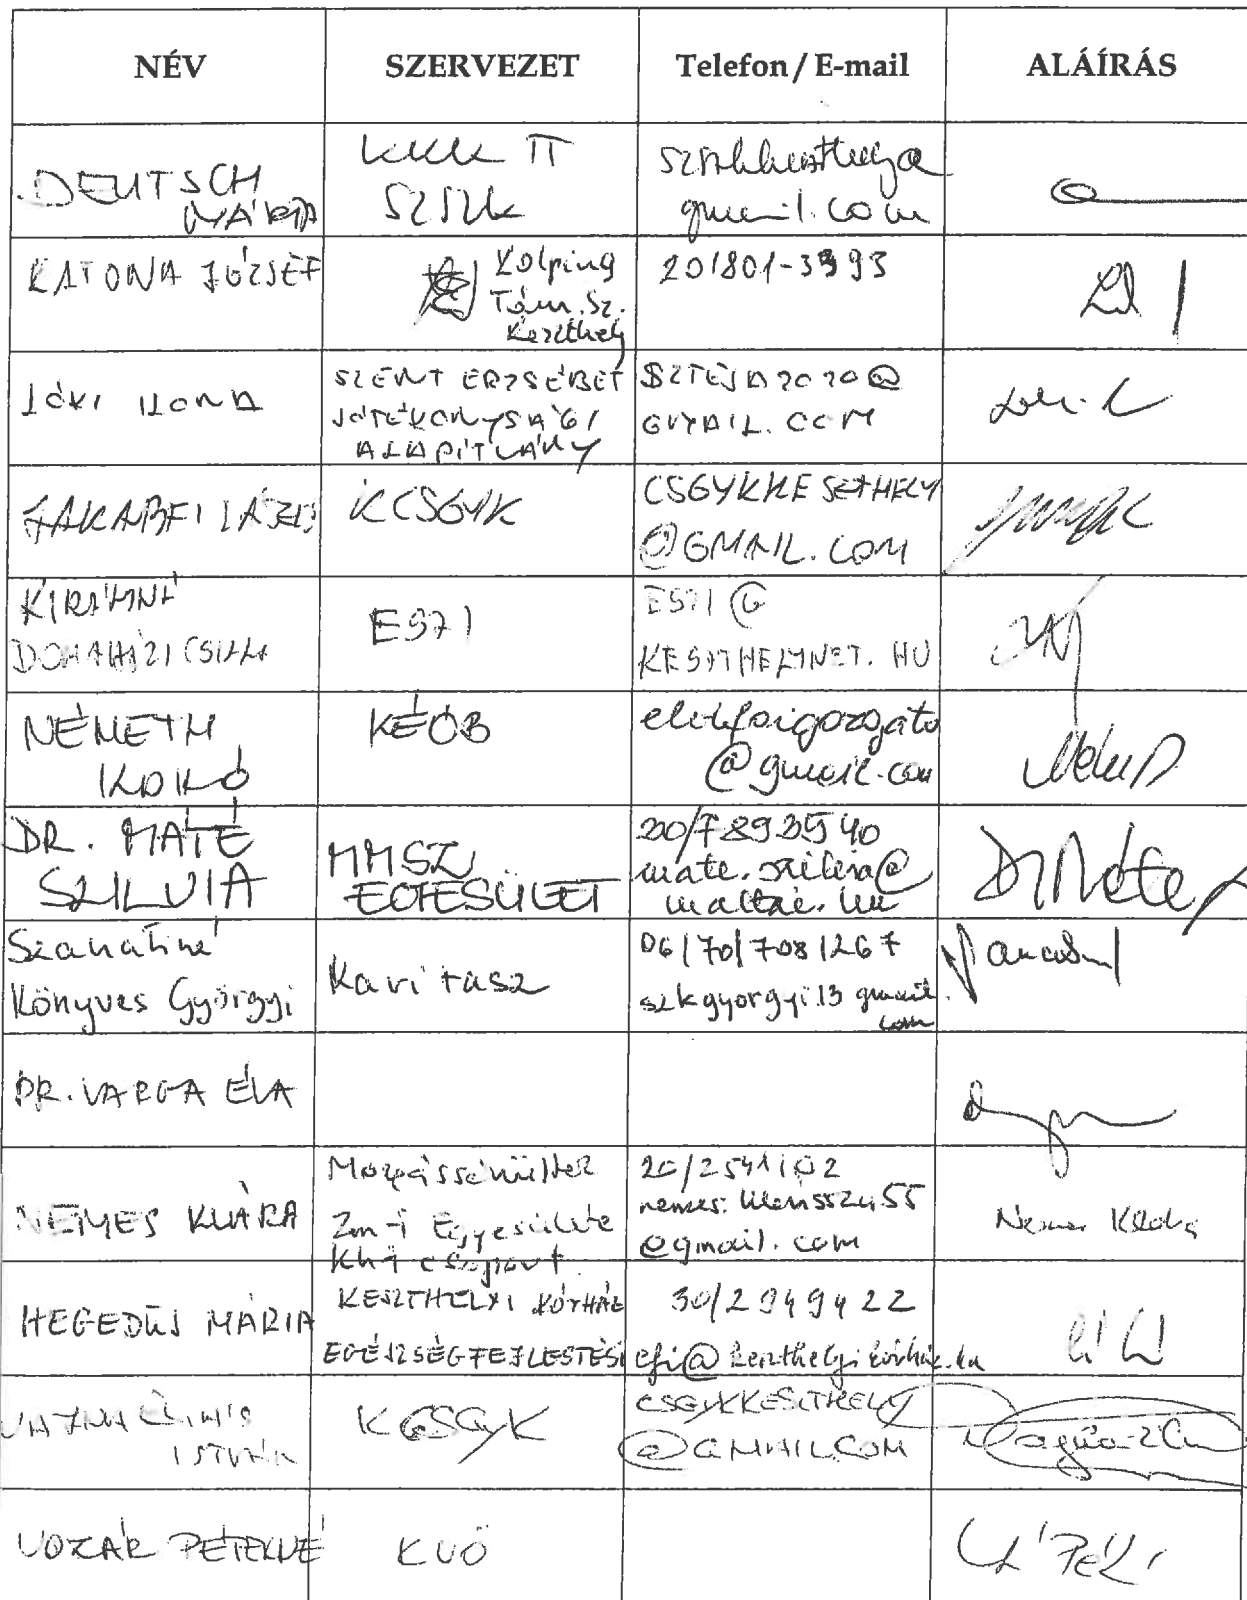 NÉV SZERVEZET Telefon / E-mail ALÁÍRÁS
DEUTSCH
MÁRIA
KKK II
SZSZK
gmail.com
KATONA JÓZSEF
Kolping
Tám. Sz.
Keszthely
JÓKI ILONA
SZENT ERZSÉBET
JÓTÉKONYSÁGI
ALAPÍTVÁNY
SZTEJA2020@
GMAIL.COM
LÁSZLÓ
KCSGYK
CSGYKKESZTHELY
@GMAIL.COM
CSILLA
ESZI
ESZI@
KESZTHELYNET.HU
NÉMETH
ILDIKÓ
KÉÖB
@gmail.com
DR. MÁTÉ
SZILVIA
MMSZ
EGYESÜLET
30/7893540
mate.szilvia@
maltai.hu
Dr Máté
Szanatiné
Könyves Györgyi
Karitasz
06/70/7081267
szkgyorgyi13 gmail.
com
DR. VARGA ÉVA
NEMES KLÁRA
Mozgássérültek
Zm-i Egyesülete
csoport
20/2541102
@gmail.com
Nemes Klára
HEGEDŰS MÁRIA
KESZTHELYI KÓRHÁZ
EGÉSZSÉGFEJLESTÉSI
30/2949422
efi@keszthelyikorhaz.hu
ISTVÁN
KCSGYK
CSGYKKESZTHELY
@GMAIL.COM
VOZÁR PÉTERNÉ
KVÖ